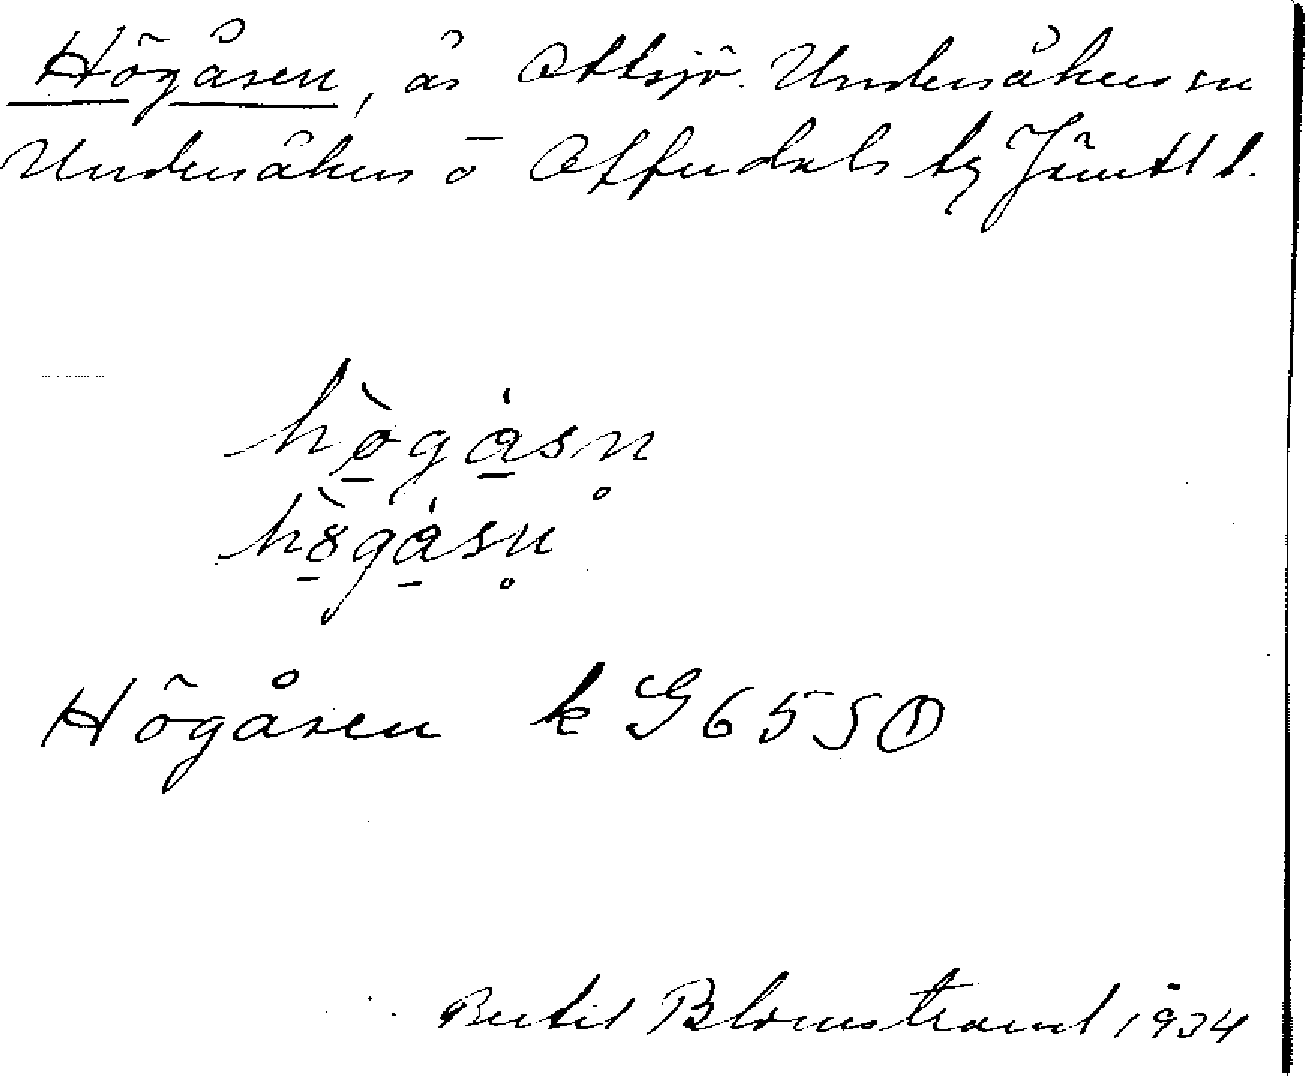 Högåsen, ås Ottsjö. Undersåkers sn
Undersåkers o Offerdals tg Jämtl l.
hög̀åsn̥
hög̀åsn̥
Högåsen k G 655 ①
Bertil Blomstrand 1934